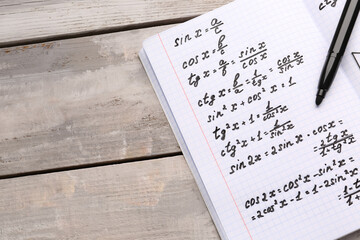 sin x = a/c
cos x = b/c
tg x = a/b = sin x/cos x
ctg x = b/a = 1/tg x = cos x/sin x
sin² x + cos² x = 1
tg² x + 1 = 1/cos² x
ctg² x + 1 = 1/sin² x
sin 2x = 2 sin x · cos x =
cos 2x = cos² x - sin² x =
= 2cos² x - 1 = 1 - 2sin² x